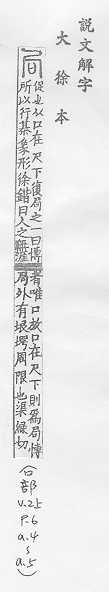 說文解字
大徐本
局
促也从口在尺下復局之一曰博
所以行棊象形徐鍇曰人之無涯
者唯口故口在尺下則爲局博
局外有垠堮周限也渠綠切
(口部
V.2上
P.6
a.4
~
a.5)